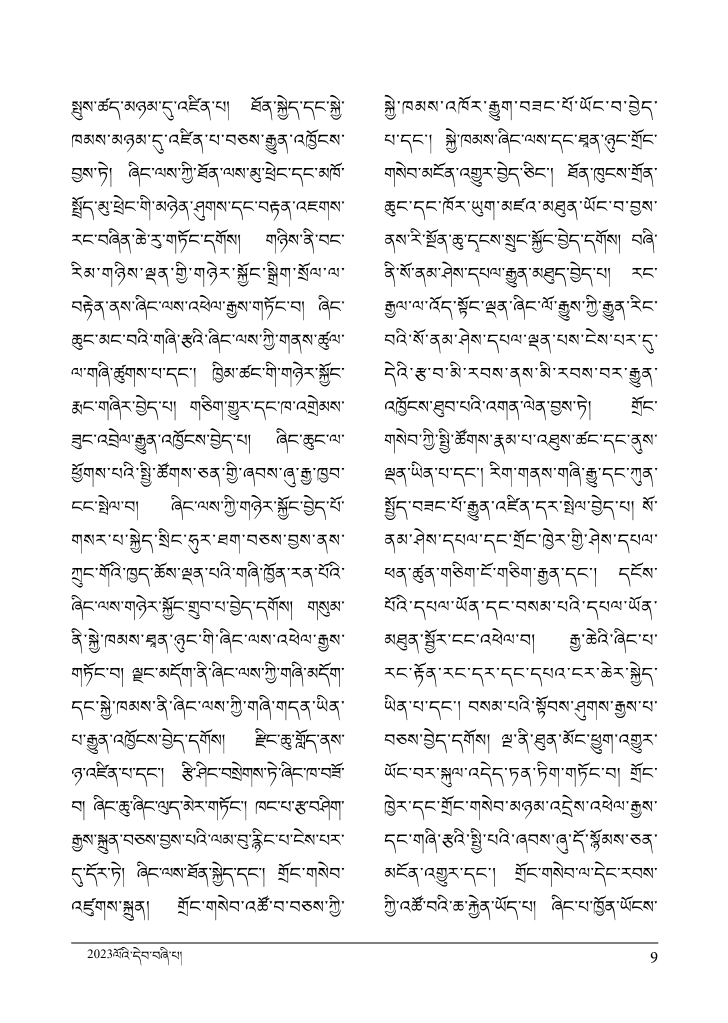 སྤུས་ཚད་མཉམ་དུ་འཛིན་པ། ཐོན་སྐྱེད་དང་སྐྱེ་
ཁམས་མཉམ་དུ་འཛིན་པ་བཅས་རྒྱུན་འཁྱོངས་
བྱས་ཏེ། ཞིང་ལས་ཀྱི་ཐོན་ལས་མུ་ཕྲེང་དང་མཁོ་
སྤྲོད་མུ་ཕྲེང་གི་མཉེན་ཤུགས་དང་བརྟན་འཇགས་
རང་བཞིན་ཆེ་རུ་གཏོང་དགོས། གཉིས་ནི་བང་
རིམ་གཉིས་ལྡན་གྱི་གཉེར་སྐྱོང་སྒྲིག་སྲོལ་ལ་
བརྟེན་ནས་ཞིང་ལས་འཕེལ་རྒྱས་གཏོང་བ། ཞིང་
ཆུང་མང་བའི་གཞི་རྩའི་ཞིང་ལས་ཀྱི་གནས་ཚུལ་
ལ་གཞི་ཚུགས་པ་དང་། ཁྱིམ་ཚང་གི་གཉེར་སྐྱོང་
རྨང་གཞིར་བྱེད་པ། གཅིག་གྱུར་དང་ཁ་འགྲེམས་
ཟུང་འབྲེལ་རྒྱུན་འཁྱོངས་བྱེད་པ། ཞིང་ཆུང་ལ་
ཕྱོགས་པའི་སྤྱི་ཚོགས་ཅན་གྱི་ཞབས་ཞུ་རྒྱ་ཁྱབ་
ངང་སྤེལ་བ། ཞིང་ལས་ཀྱི་གཉེར་སྐྱོང་བྱེད་པོ་
གསར་པ་སྐྱེད་སྲིང་ཧུར་ཐག་བཅས་བྱས་ནས་
ཀྲུང་གོའི་ཁྱད་ཆོས་ལྡན་པའི་གཞི་ཁྱོན་རན་པོའི་
ཞིང་ལས་གཉེར་སྐྱོང་གྲུབ་པ་བྱེད་དགོས། གསུམ་
ནི་སྐྱེ་ཁམས་ཐྲན་ཉུང་གི་ཞིང་ལས་འཕེལ་རྒྱས་
གཏོང་བ། ལྗང་མདོག་ནི་ཞིང་ལས་ཀྱི་གཞི་མདོག་
དང་སྐྱེ་ཁམས་ནི་ཞིང་ལས་ཀྱི་གཞི་གདན་ཡིན་
པ་རྒྱུན་འཁྱོངས་བྱེད་དགོས། རྫིང་ཆུ་གློད་ནས་
ཉ་འཛིན་པ་དང་། རྩི་ཤིང་བསྲེགས་ཏེ་ཞིང་ཁ་བཟོ་
བ། ཞིང་ཆུ་ཞིང་ལུད་མེར་གཏོང་། ཁང་པ་རྩ་བཤིག་
རྒྱས་སྐྲུན་བཅས་བྱས་པའི་ལམ་བུ་རྙིང་པ་ངེས་པར་
དུ་དོར་ཏེ། ཞིང་ལས་ཐོན་སྐྱེད་དང་། གྲོང་གསེབ་
འཛུགས་སྐྲུན། གྲོང་གསེབ་འཚོ་བ་བཅས་ཀྱི་
སྐྱེ་ཁམས་འཁོར་རྒྱུག་བཟང་པོ་ཡོང་བ་བྱེད་
པ་དང་། སྐྱེ་ཁམས་ཞིང་ལས་དང་ཐྲན་ཉུང་གྲོང་
གསེབ་མངོན་འགྱུར་བྱེད་ཅིང་། ཐོན་ཁུངས་གྲོན་
ཆུང་དང་ཁོར་ཡུག་མཛའ་མཐུན་ཡོང་བ་བྱས་
ནས་རི་སྔོན་ཆུ་དྭངས་སྲུང་སྐྱོང་བྱེད་དགོས། བཞི་
ནི་སོ་ནམ་ཤེས་དཔལ་རྒྱུན་མཐུད་བྱེད་པ། རང་
རྒྱལ་ལ་འོད་སྟོང་ལྡན་ཞིང་ལོ་རྒྱུས་ཀྱི་རྒྱུན་རིང་
བའི་སོ་ནམ་ཤེས་དཔལ་ལྡན་པས་ངེས་པར་དུ་
དེའི་རྩ་བ་མི་རབས་ནས་མི་རབས་བར་རྒྱུན་
འཁྱོངས་ཐུབ་པའི་འགན་ལེན་བྱས་ཏེ། གྲོང་
གསེབ་ཀྱི་སྤྱི་ཚོགས་རྣམ་པ་འཐུས་ཚང་དང་ནུས་
ལྡན་ཡིན་པ་དང་། རིག་གནས་གཞི་རྒྱུ་དང་ཀུན་
སྤྱོད་བཟང་པོ་རྒྱུན་འཛིན་དར་སྤེལ་བྱེད་པ། སོ་
ནམ་ཤེས་དཔལ་དང་གྲོང་ཁྱེར་གྱི་ཤེས་དཔལ་
ཕན་ཚུན་གཅིག་ངོ་གཅིག་རྒྱན་དང་། དངོས་
པོའི་དཔལ་ཡོན་དང་བསམ་པའི་དཔལ་ཡོན་
མཐུན་སྦྱོར་ངང་འཕེལ་བ། རྒྱ་ཆེའི་ཞིང་པ་
རང་རྟོན་རང་དར་དང་དཔའ་ངར་ཆེར་སྐྱེད་
ཡིན་པ་དང་། བསམ་པའི་སྟོབས་ཤུགས་རྒྱས་པ་
བཅས་བྱེད་དགོས། ལྔ་ནི་ཐུན་མོང་ཕྱུག་འགྱུར་
ཡོང་བར་སྐུལ་འདེད་ཏན་ཏིག་གཏོང་བ། གྲོང་
ཁྱེར་དང་གྲོང་གསེབ་མཉམ་འདྲེས་འཕེལ་རྒྱས་
དང་གཞི་རྩའི་སྤྱི་པའི་ཞབས་ཞུ་དོ་སྙོམས་ཅན་
མངོན་འགྱུར་དང་། གྲོང་གསེབ་ལ་དེང་རབས་
ཀྱི་འཚོ་བའི་ཆ་རྐྱེན་ཡོད་པ། ཞིང་པ་ཁྱོན་ཡོངས་
2023ལོའི་དེབ་བཞི་པ།
9